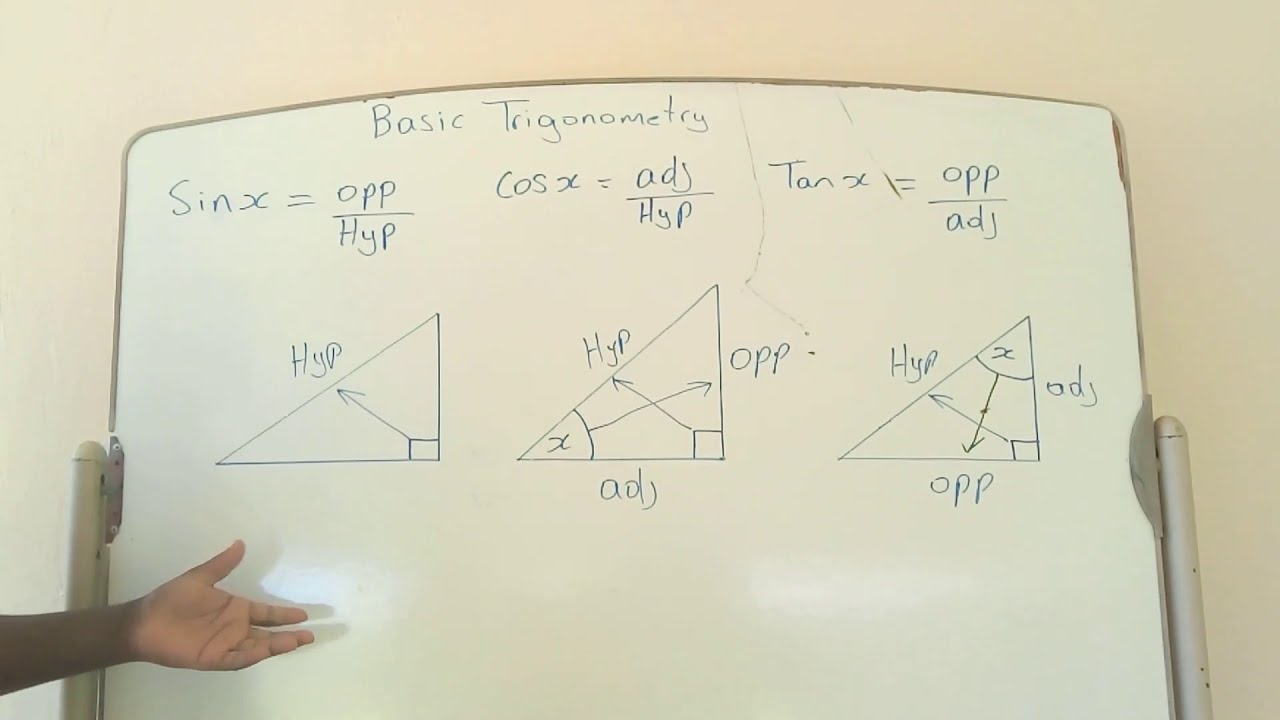 Basic Trigonometry
Sinx = opp/Hyp Cosx = adj/Hyp Tanx = opp/adj
Hyp
Hyp
opp
x
adj
Hyp
x
adj
opp